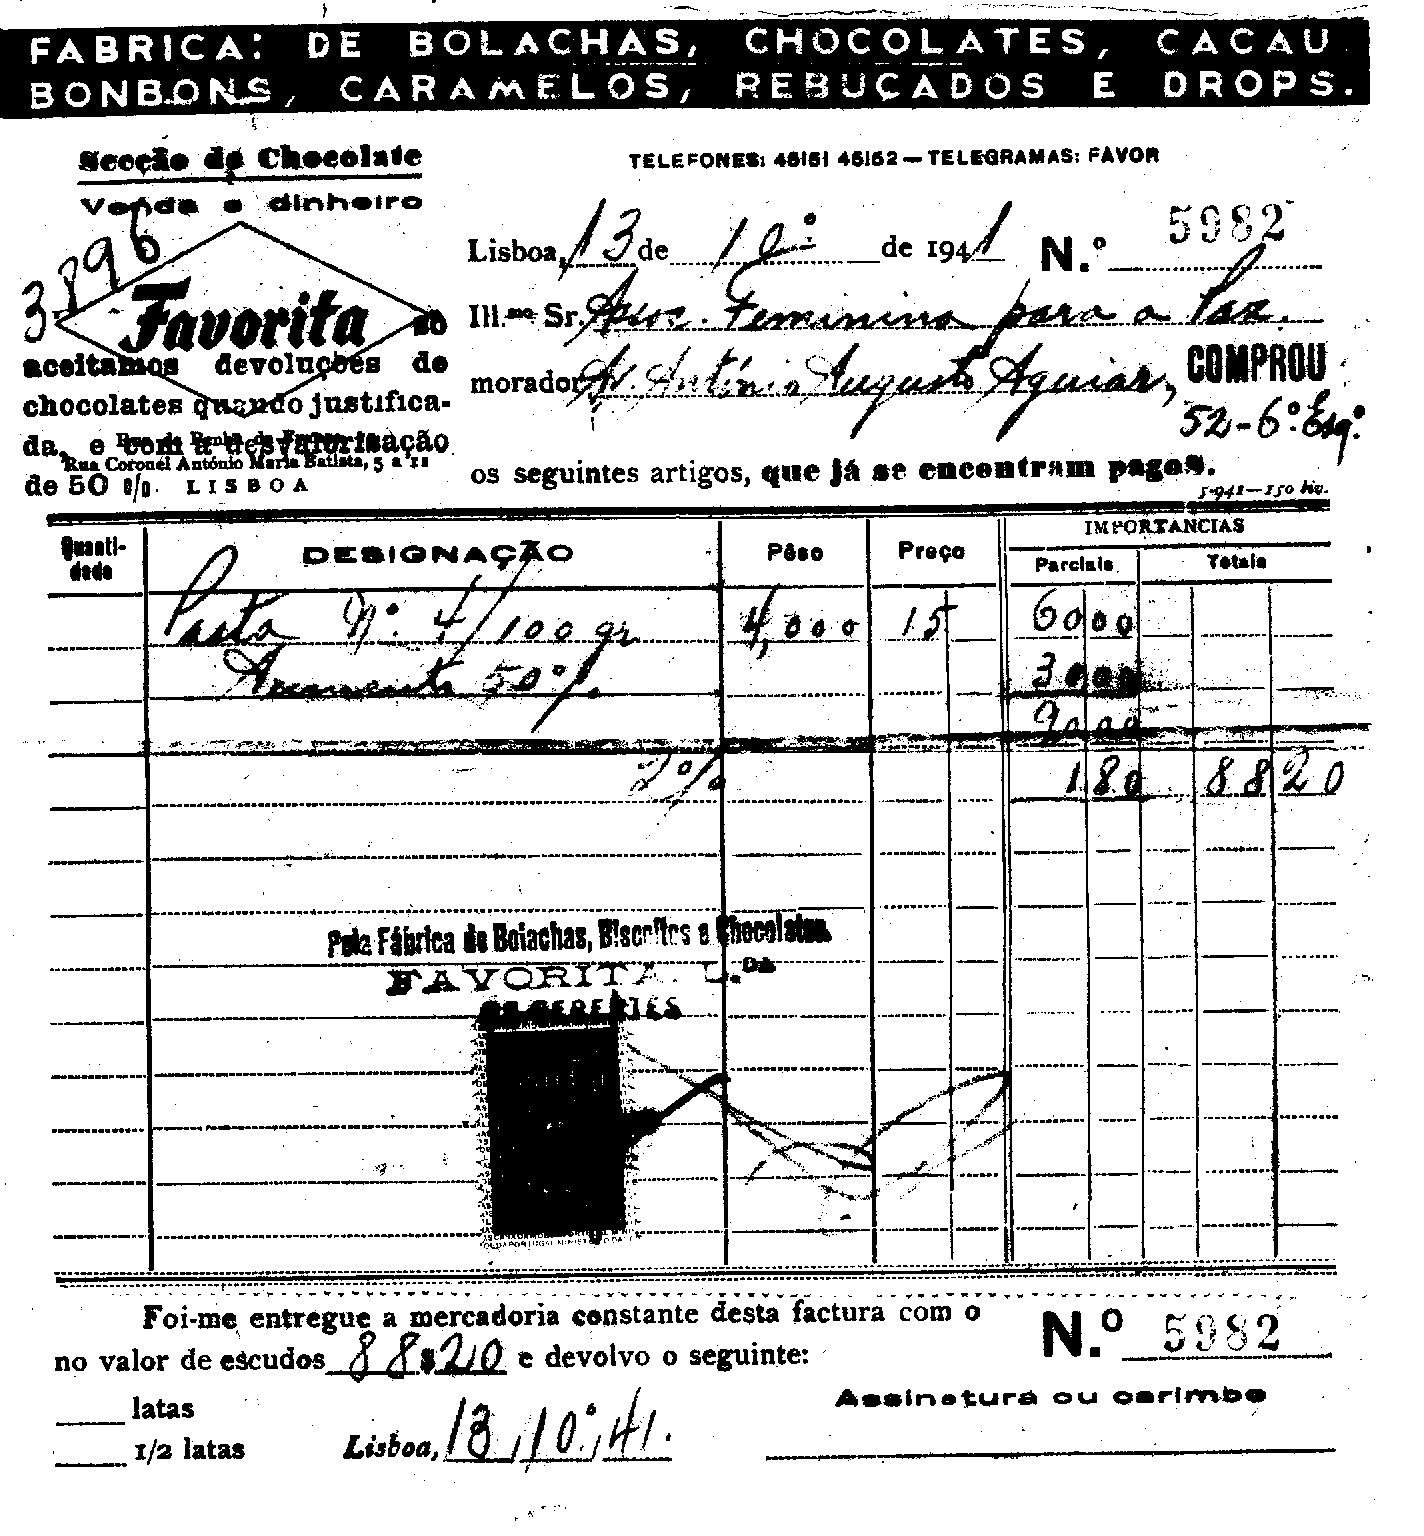 FABRICA: DE BOLACHAS, CHOCOLATES, CACAU
BONBONS, CARAMELOS, REBUÇADOS E DROPS.
Secção de Chocolate
TELEFONES: 45151 45152 — TELEGRAMAS: FAVOR
Venda a dinheiro
3896
Lisboa, 13 de 10º de 1941 N.º 5982
Favorita
Ill.mo Sr. Assoc. Feminina para a Paz.
aceitamos devoluções de
morador Av. António Augusto Aguiar, COMPROU
chocolates quando justifica-
52-6º. Esqº.
da, e com a desvalorisação
Rua Coronel António Maria Batista, 5 a 11
de 50 º/o. LISBOA
os seguintes artigos, que já se encontram pagos.
5-941—150 liv.
Quantidade DESIGNAÇÃO Pêso Preço IMPORTANCIAS
Parciais Totais
Pasta Nº. 4/100 gr 4,000 15 6000
Aumento 50% 3000
9000
2% 180 8820
Pela Fábrica de Bolachas, Biscoitos e Chocolates,
FAVORITA, L.DA
OS GERENTES
Foi-me entregue a mercadoria constante desta factura com o N.º 5982
no valor de escudos 88$20 e devolvo o seguinte:
Assinatura ou carimbo
latas
1/2 latas Lisboa, 13, 10º, 41.